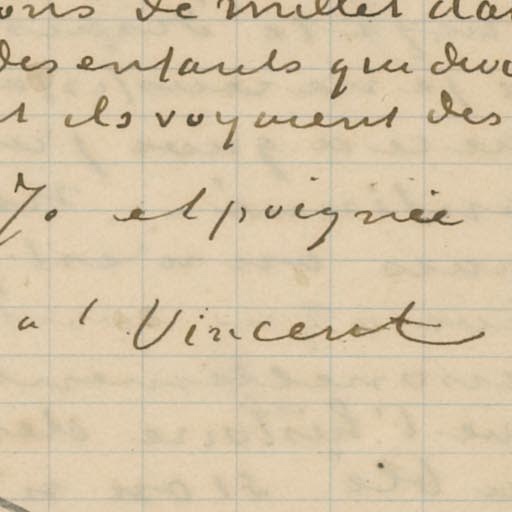 ons de millet da
des enfants qui di
et ils voyaient des
Jo et poignée
a t Vincent